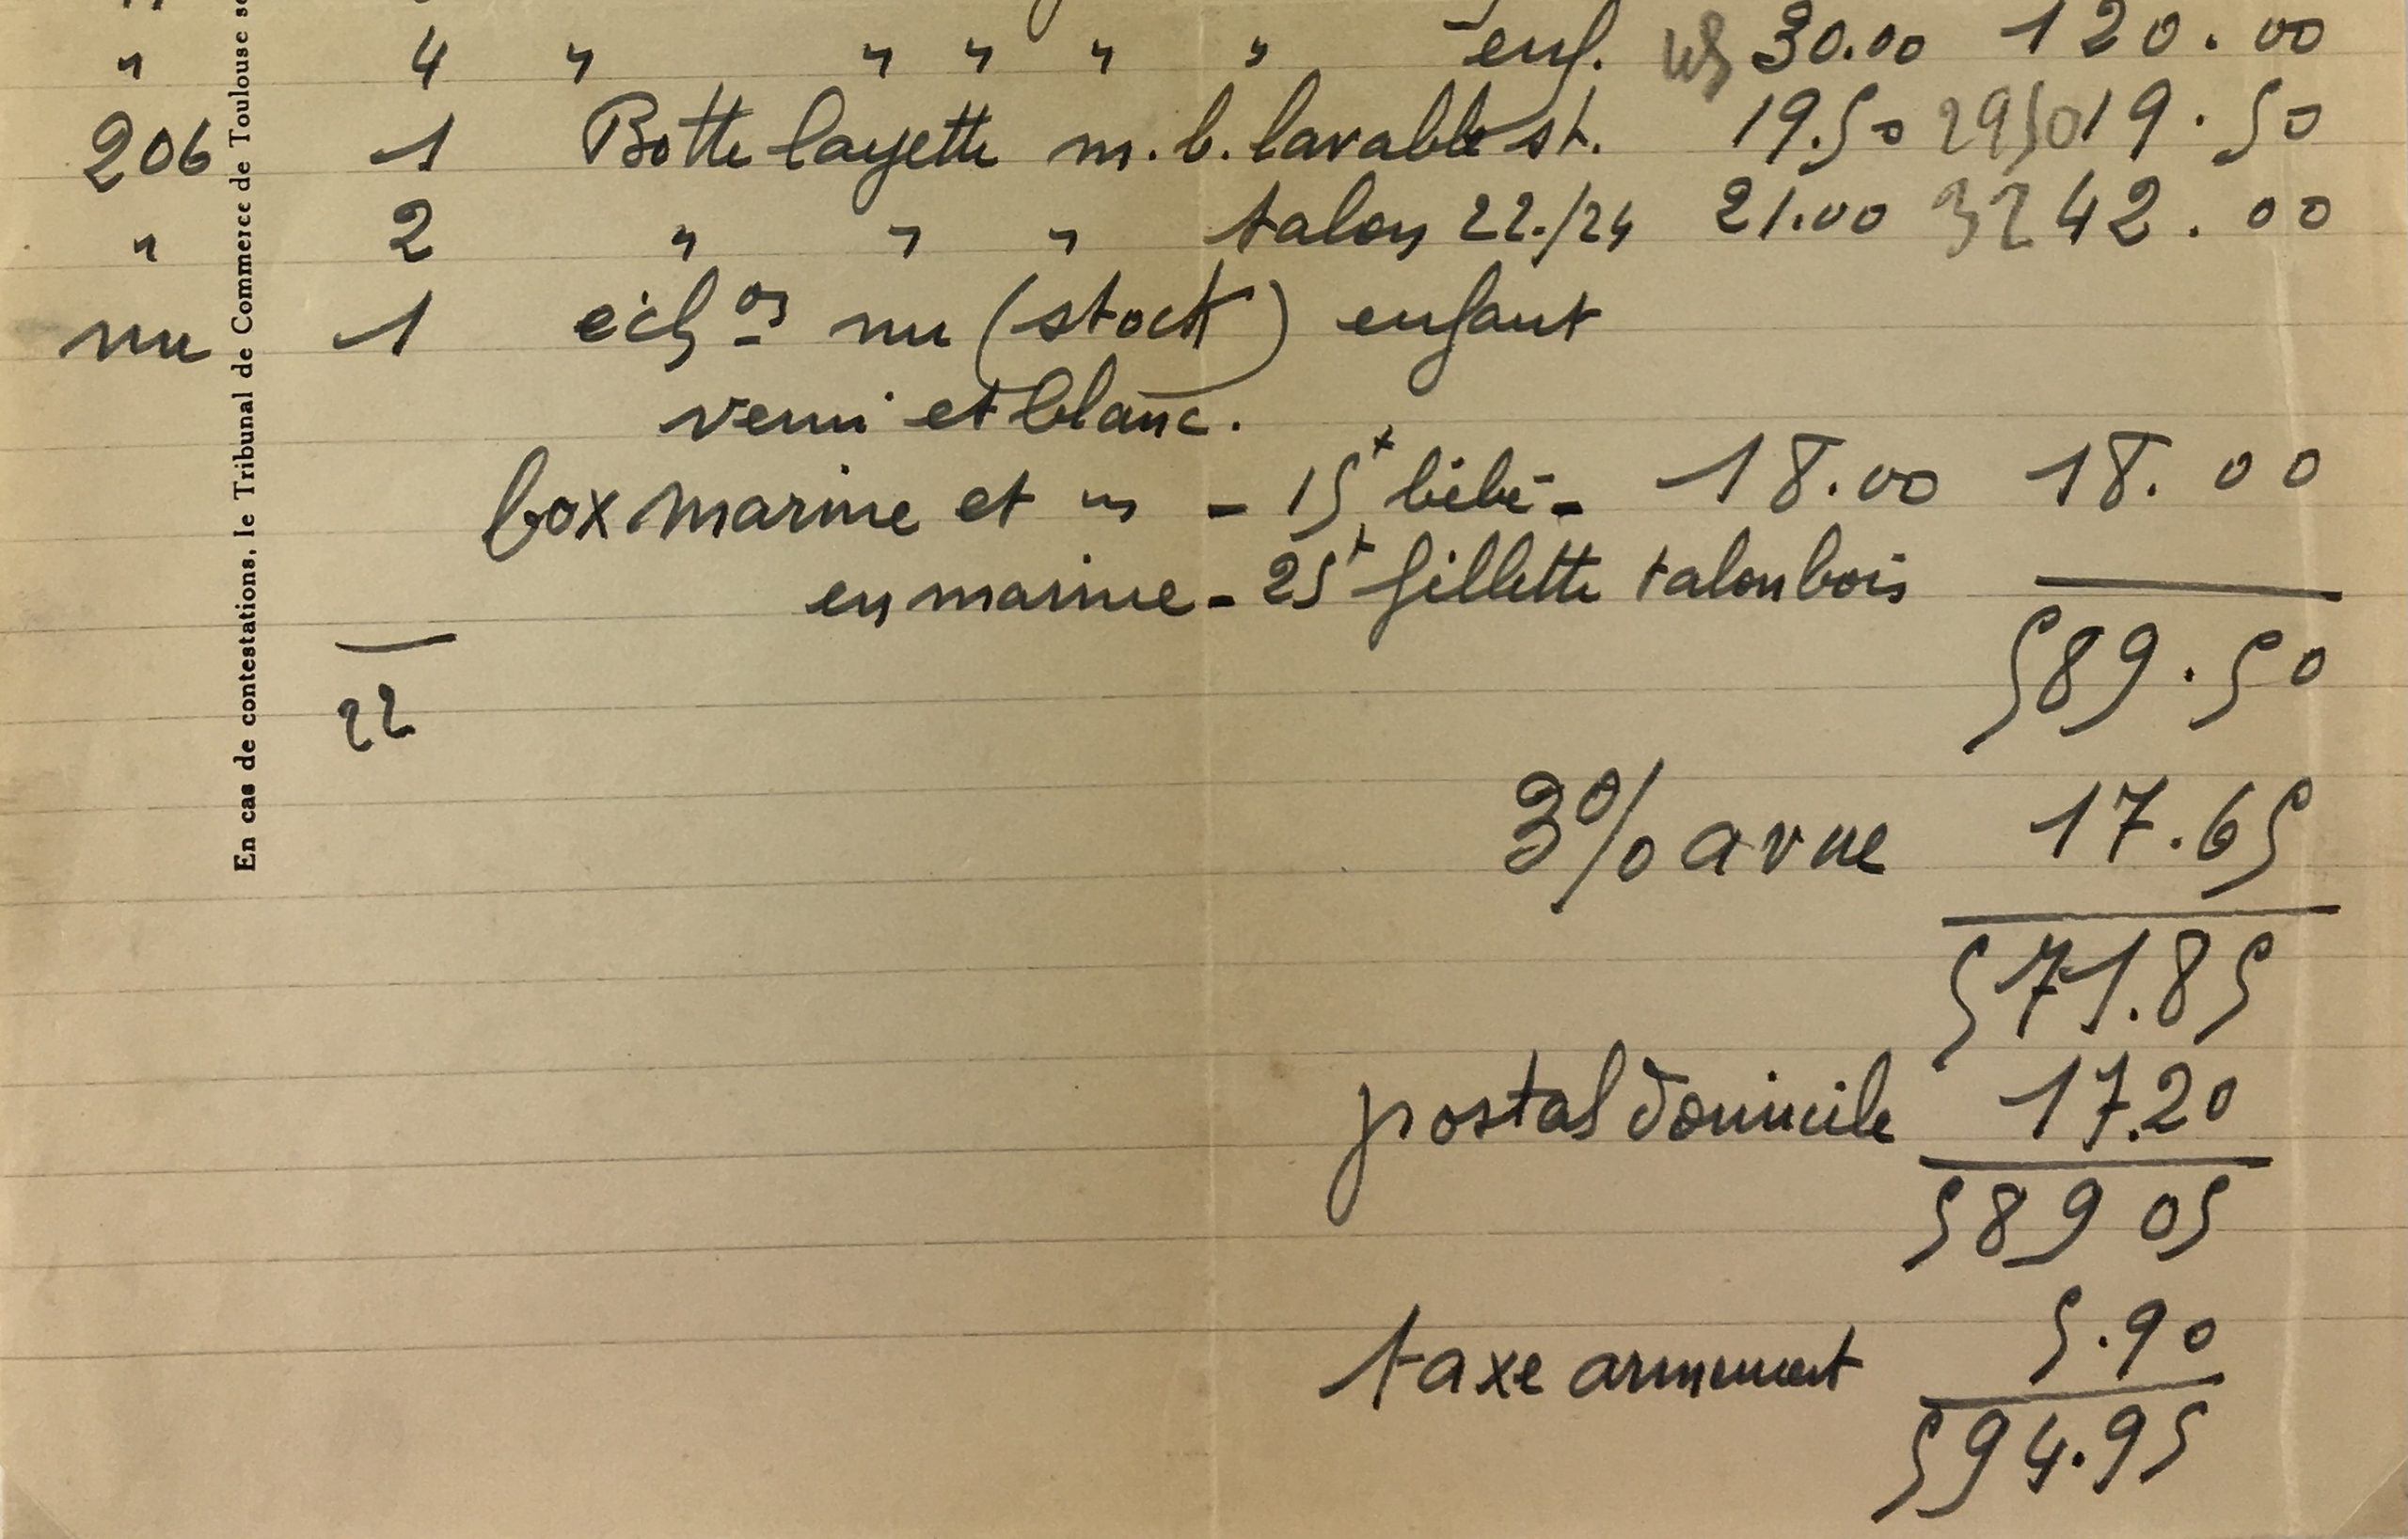 " 4 " " " " " enf. 45 30.00 120.00
206 1 Botte layette m.b. lavable st. 19.50 2950 19.50
" 2 " " " talon 22./24 21.00 32 42.00
nu 1 éch on nu (stock) enfant
verni et blanc.
box marine et " - 15+ bébé - 18.00 18.00
en marine - 25+ fillette talon bois
22
589.50
3% a vue 17.65
571.85
postal domicile 17.20
589 05
taxe armement 5.90
594.95
En cas de contestations, le Tribunal de Commerce de Toulouse